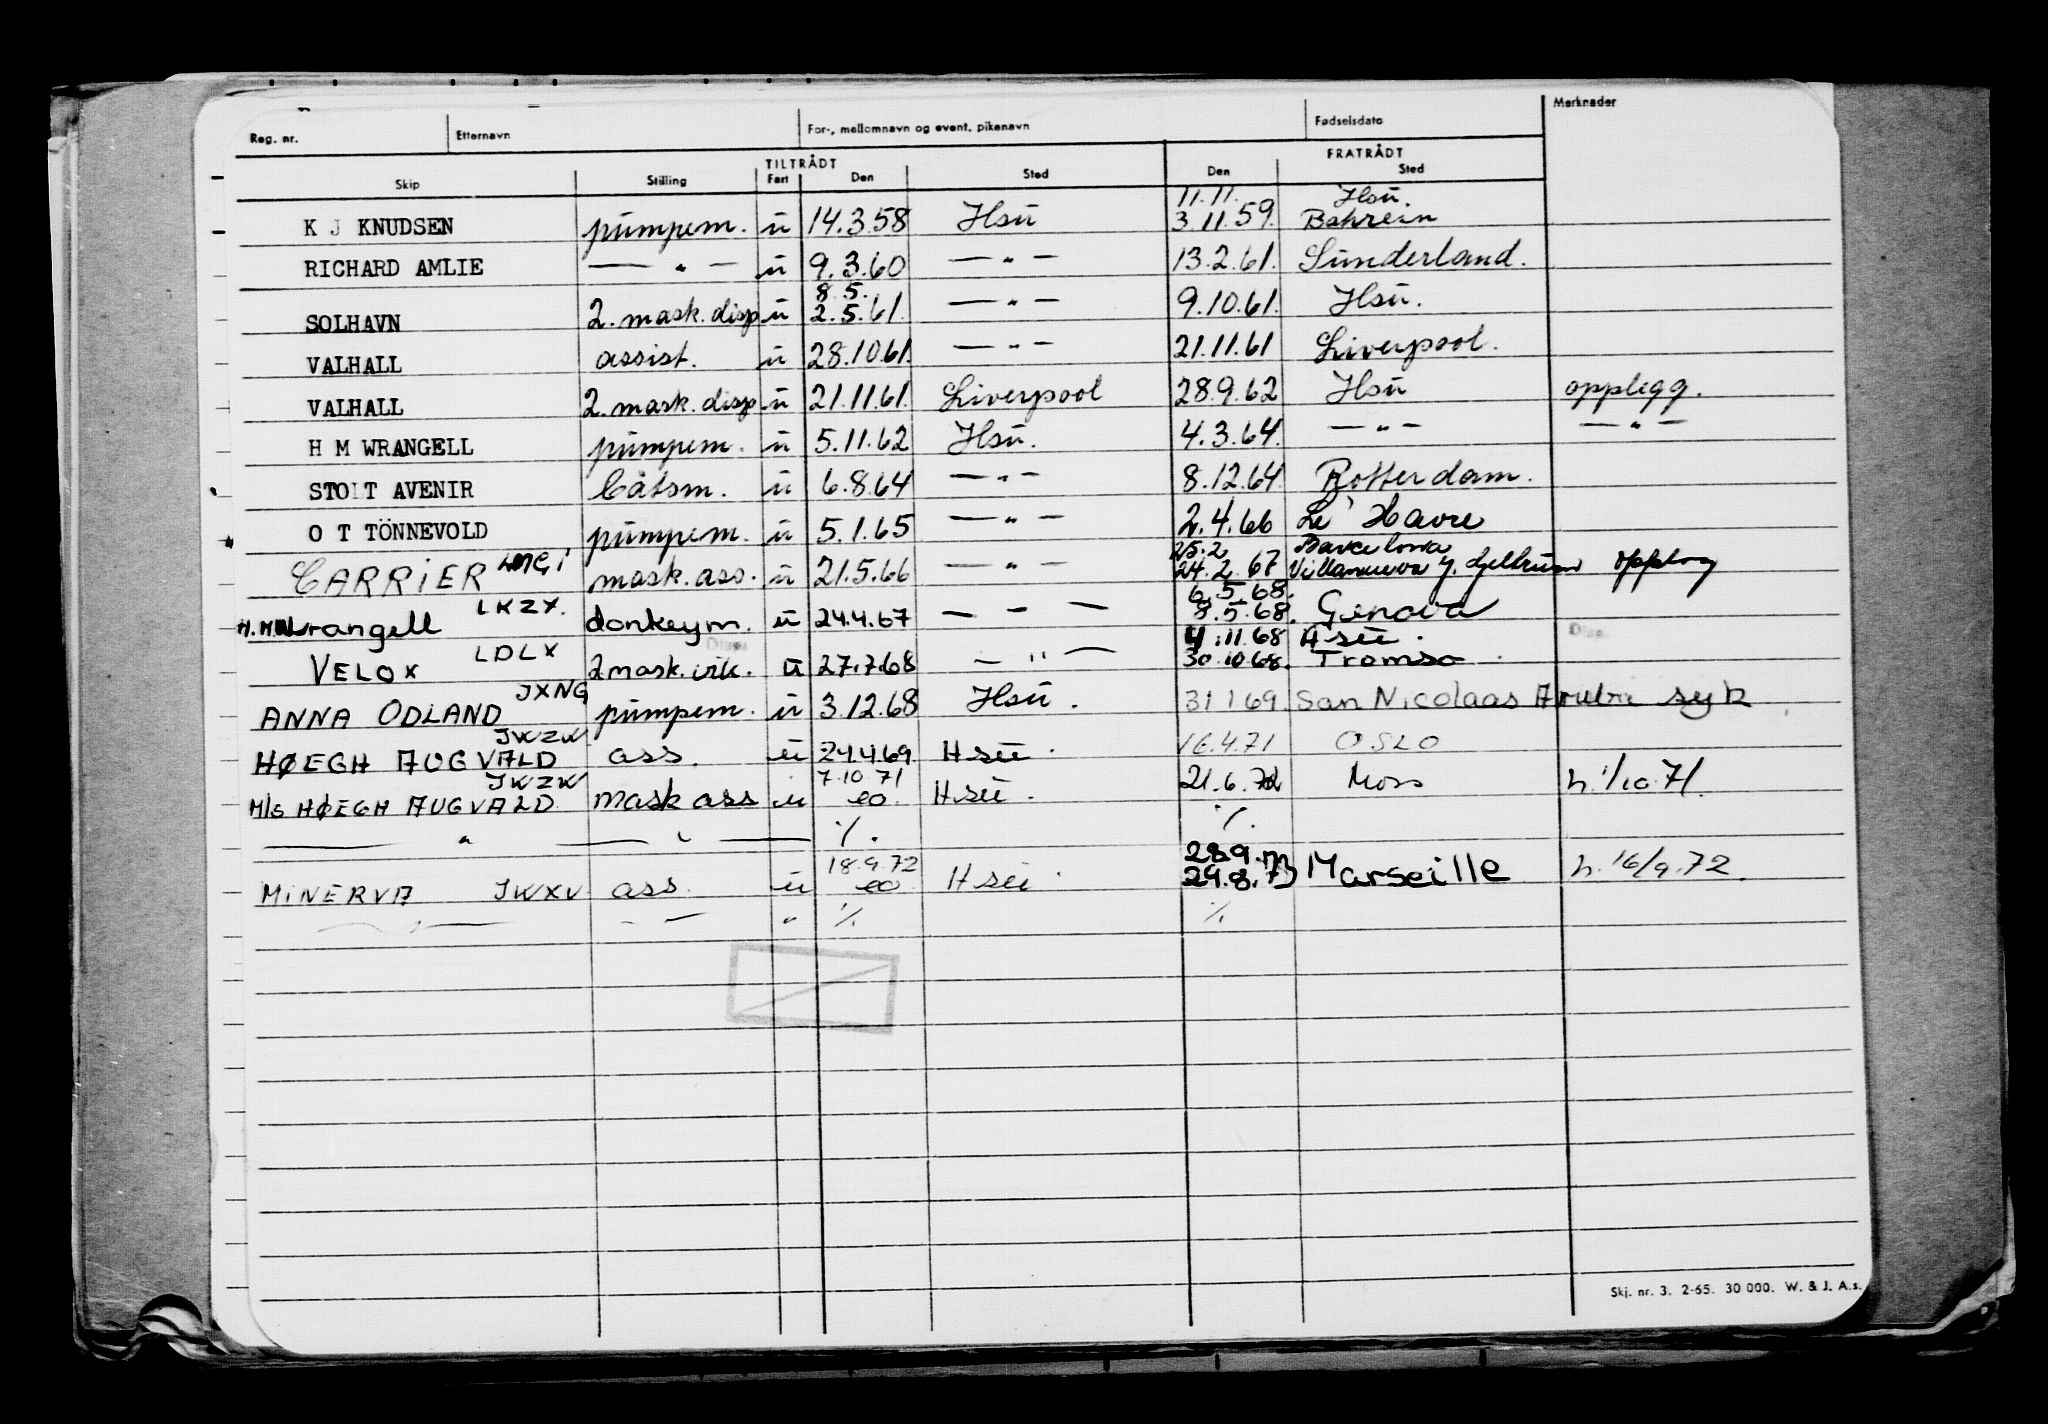 Reg. nr. Etternavn For-, mellomnavn og event. pikenavn Fødselsdato Merknader
TILTRÅDT FRATRÅDT
Skip Stilling Fart Den Sted Den Sted
11.11. Hsü.
K J KNUDSEN pümpem. ü 14.3.58 Hsü 3.11.59. Bahrein
RICHARD AMLIE — " — ü 9.3.60 — " — 13.2.61. Sünderland.
8.5.
SOLHAVN 2. mask. disp ü 2.5.61. — " — 9.10.61. Hsü.
VALHALL assist. ü 28.10.61. — " — 21.11.61 Liverpool.
VALHALL 2. mask. disp. ü 21.11.61. Liverpool 28.9.62 Hsü opplegg.
H M WRANGELL pümpem. ü 5.11.62 Hsü. 4.3.64. — " — — " —
STOLT AVENIR båtsm. ü 6.8.64 — " — 8.12.64. Rotterdam.
O T TÖNNEVOLD pümpem. ü 5.1.65 — " — 2.4.66 Le' Havre
25.2 Barcelona
CARRIER mask. ass. ü 21.5.66 — " — 24.2.67 Villanueva y. Geltru opplag
6.5.68.
H.M. Wrangell LKZX. donkeym. ü 24.4.67 — " — 8.5.68. Genova
4.11.68 Hsü.
VELOX LDLX 2 mask. vik. ü 27.7.68 — " — 30.10.68. Tromsø.
ANNA ODLAND JXNG pümpem. ü 3.12.68 Hsü. 31 1 69. San Nicolaas Aruba syk
HØEGH AUGVALD JWZW ass. ü 24.4.69 Hsü. 16.4.71 OSLO
7.10 71
M/S HØEGH AUGVALD JWZW mask ass ü eo. Hsü. 21.6.72 Moss h. 1/10.71.
— " — — " — ./. ./.
18.9.72 28.9.73
MINERVA JWXV ass. ü eo Hsü. 29.8.73 Marseille h. 16/9.72.
— " — — — " ./. ./.
Skj. nr. 3. 2-65. 30 000. W. & J. A.s.